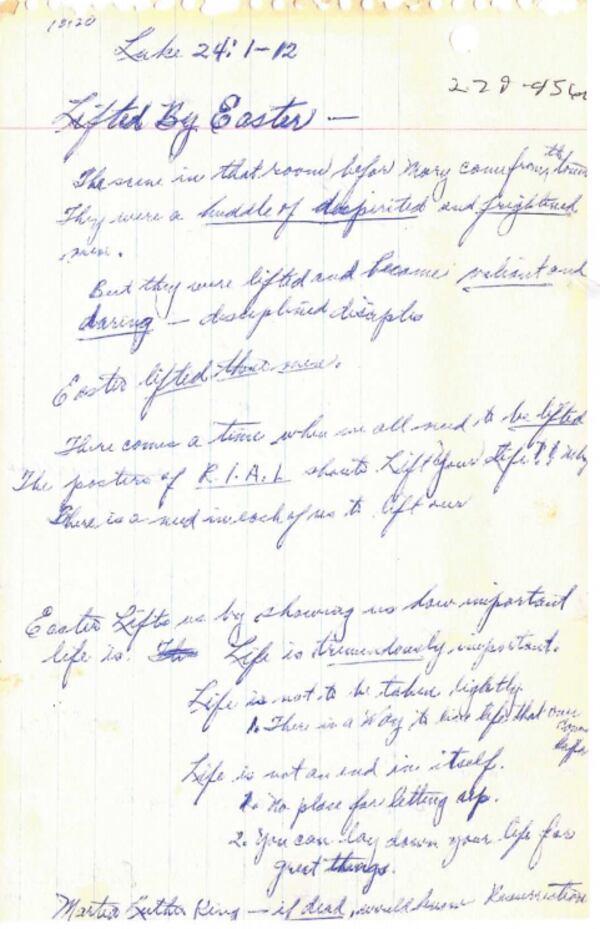 10:20
Luke 24:1-12
228-456
Lifted By Easter —
The scene in that room before Mary came from the tomb
They were a huddle of dispirited and frightened
men.
But they were lifted and became valiant and
daring — disciplined disciples
Easter lifted those men.
There comes a time when we all need to be lifted
The posters of R.I.A.L shouts Lift Your Life!! Why
There is a need in each of us to lift our
Easter Lifts us by showing us how important
life is. Life is tremendously important.
Life is not to be taken lightly
1. There is a Way to live life that
Life is not an end in itself.
1. No place for letting up.
2. You can lay down your life for
great things.
Martin Luther King — if dead, would know Resurrection